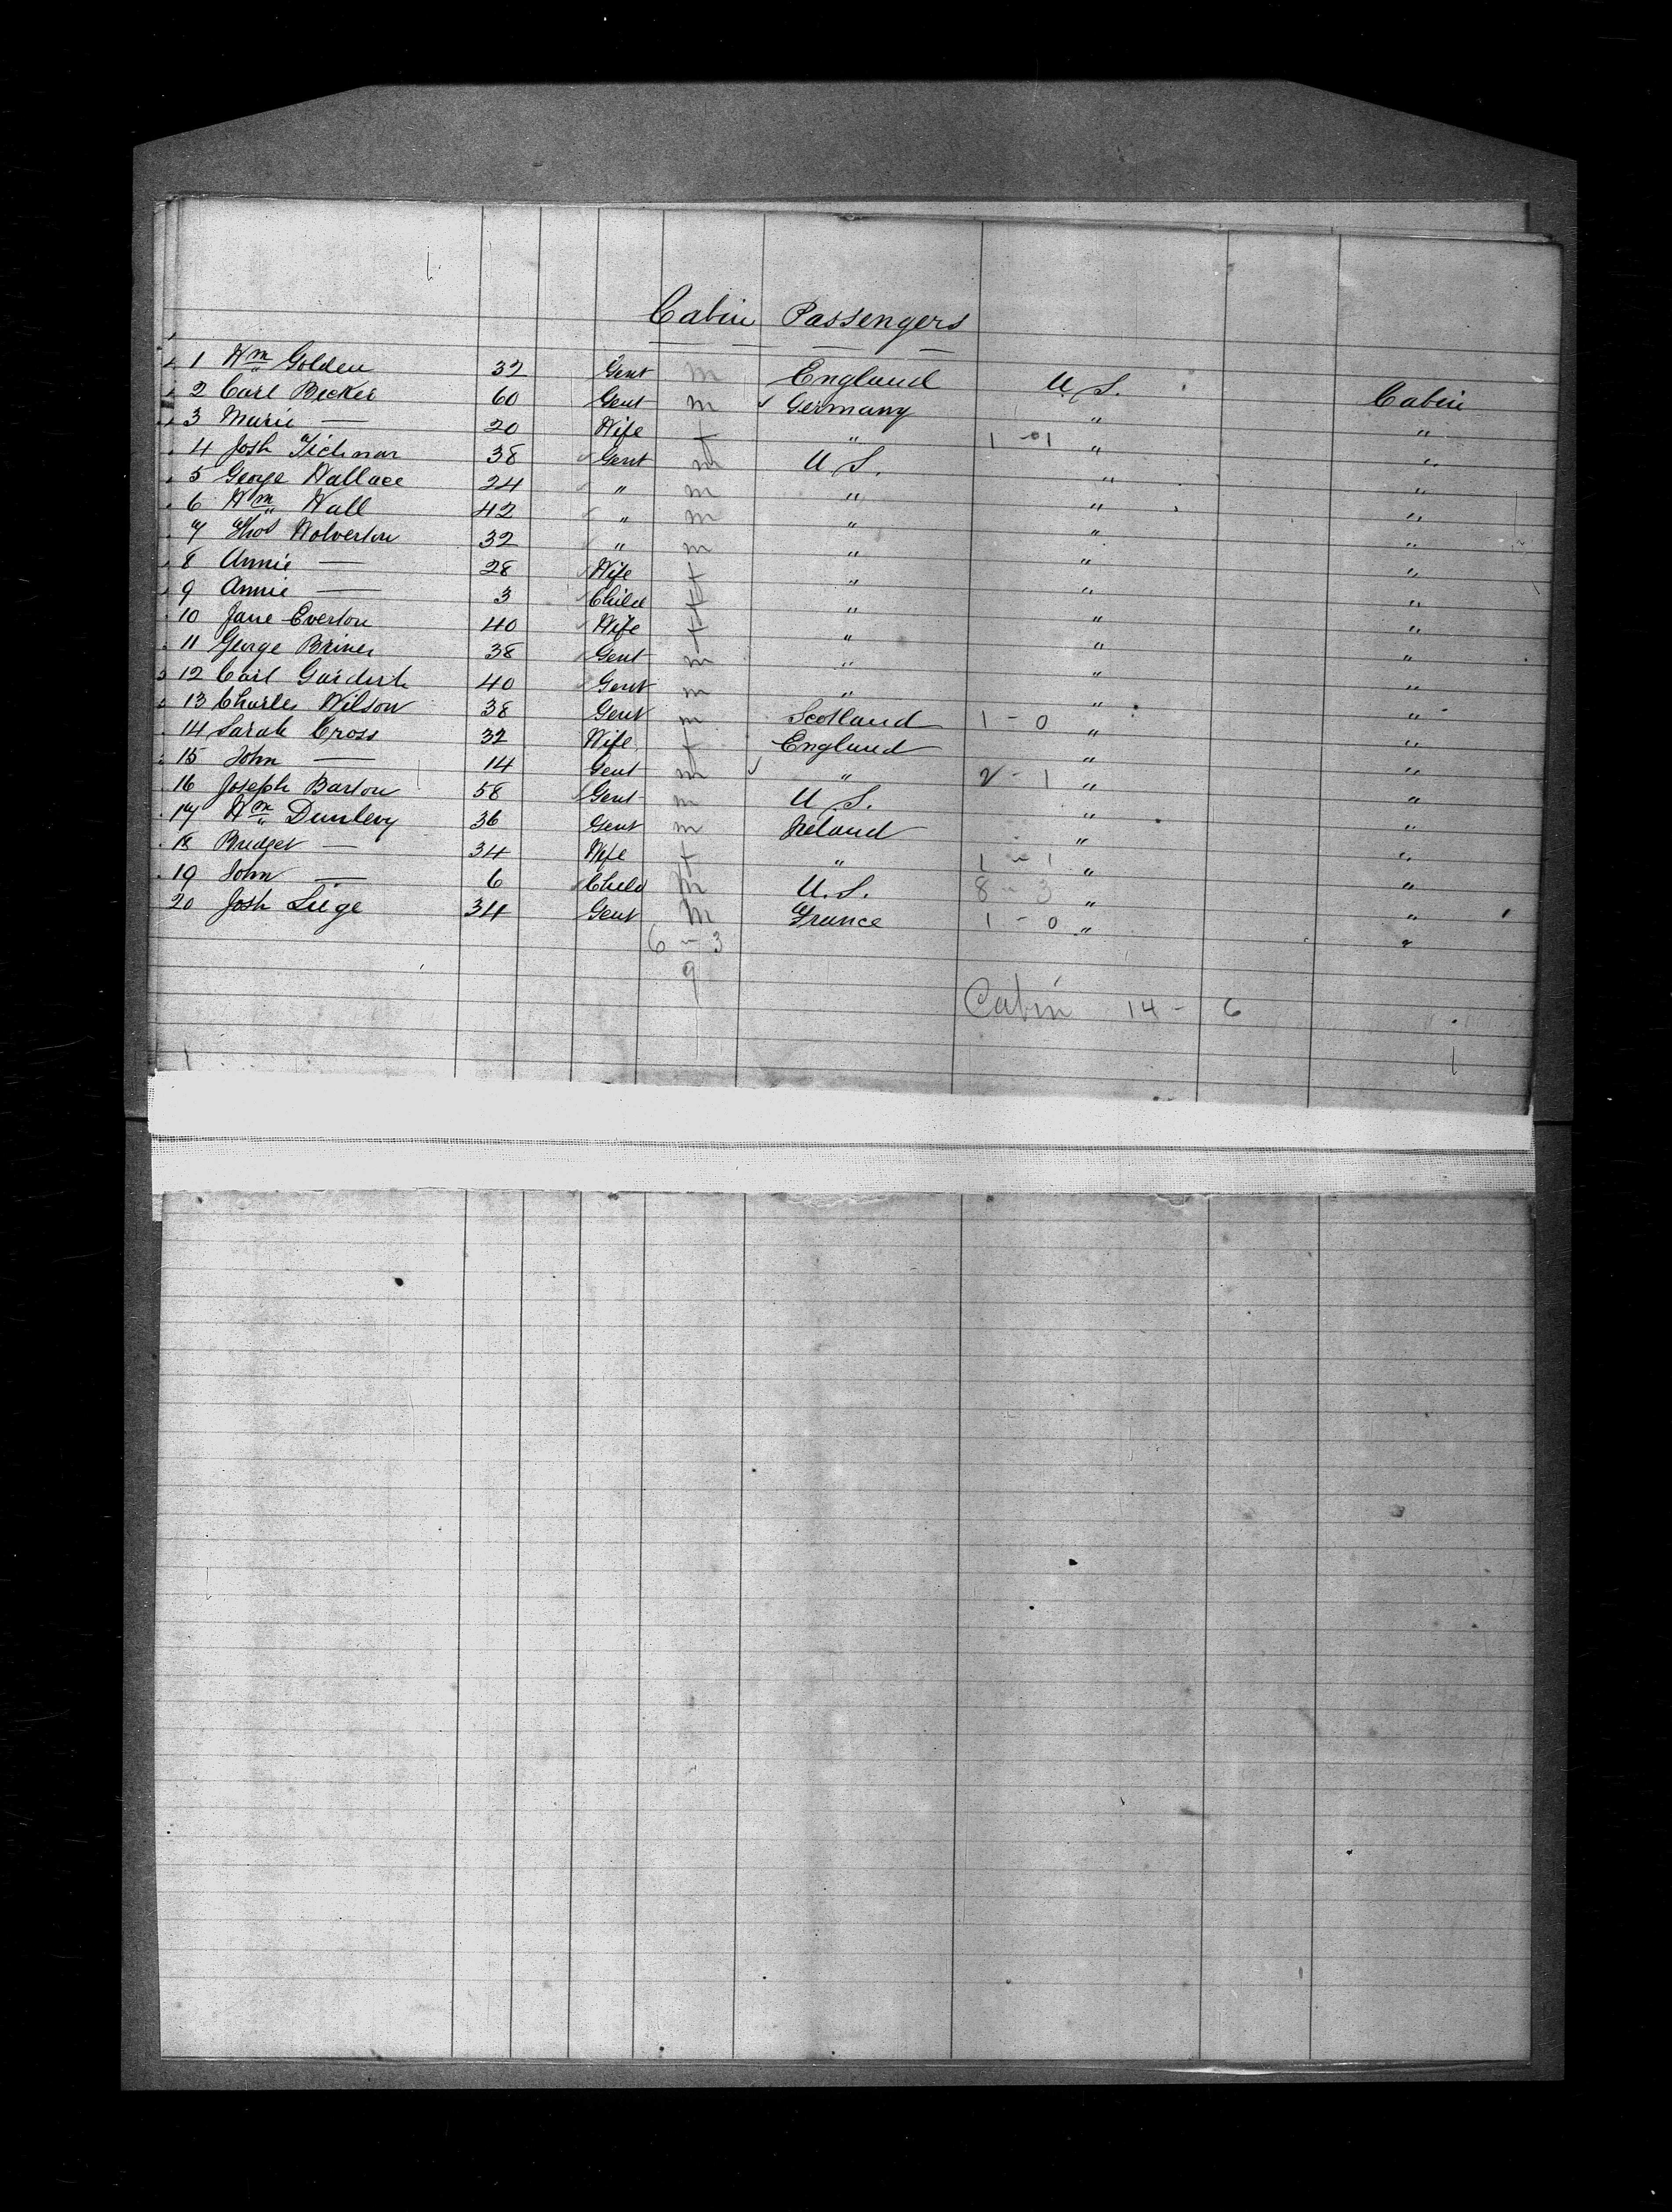 Cabin Passengers
1 Wm Golden 32 Gent m England U S. Cabin
2 Carl Becker 60 Gent m Germany " "
3 Marie — 20 Wife f " 1 - 1 " "
4 Josh Tichnor 38 Gent m U S. " "
5 George Wallace 24 " m " " "
6 Wm Wall 42 " m " " "
7 Thos Wolverton 32 " m " " "
8 Annie — 28 Wife f " " "
9 Annie — 3 Child f " " "
10 Jane Everton 40 Wife f " " "
11 George Briner 38 Gent m " " "
12 Carl 40 Gent m " " "
13 Charles Wilson 38 Gent m Scotland 1 - 0 " "
14 Sarah Cross 32 Wife f England " "
15 John — 14 Gent m " 2 - 1 " "
16 Joseph Barton 58 Gent m U. S. " "
17 Wm Dunlevy 36 Gent m Ireland " "
18 Bridget — 34 Wife f " 1 - 1 " "
19 John — 6 Child m U. S. 8 - 3 " "
20 Josh Liege 34 Gent m France 1 - 0 " "
6 - 3
9
Cabin 14 - 6